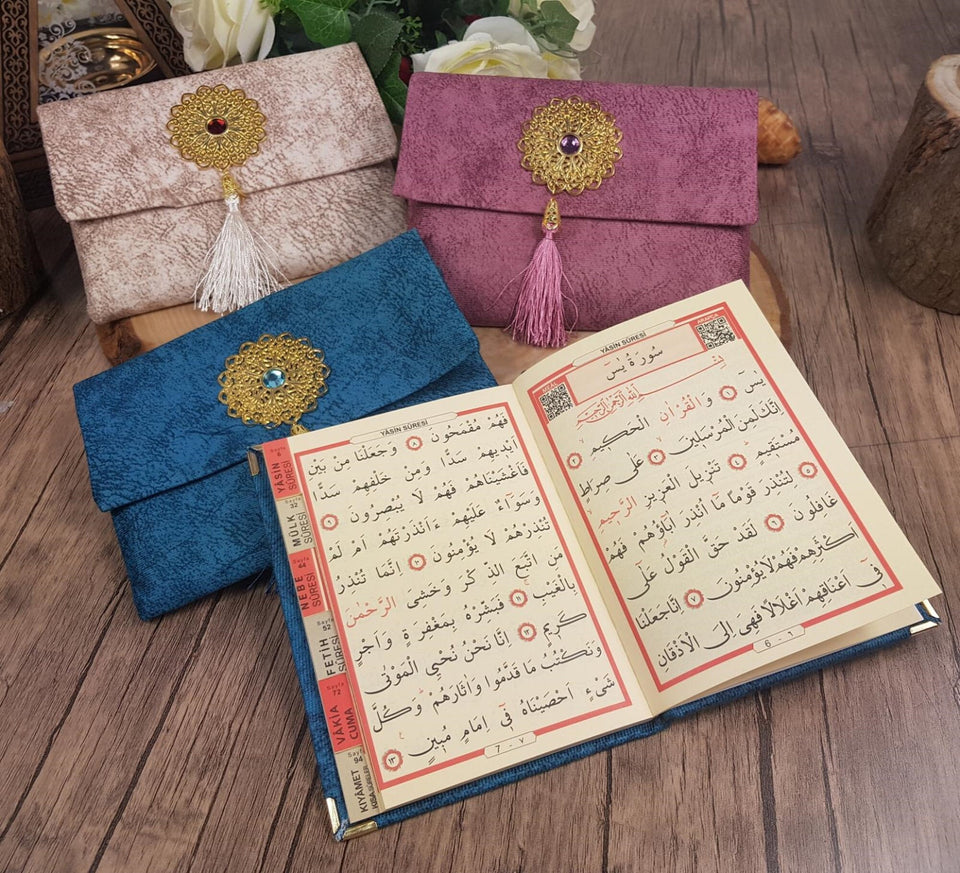 YÂSİN SÛRESİ
ARAPÇA
سُورَةُ يٰسٓ
بِسْمِ اللّٰهِ الرَّحْمٰنِ الرَّحِيمِ
يٰسٓ ١ وَالْقُرْاٰنِ الْحَكِيمِ ٢
اِنَّكَ لَمِنَ الْمُرْسَلِينَ ٣ عَلٰى صِرَاطٍ
مُسْتَقِيمٍ ٤ تَنْزِيلَ الْعَزِيزِ الرَّحِيمِ
٥ لِتُنْذِرَ قَوْمًا مَٓا اُنْذِرَ اٰبَٓاؤُهُمْ فَهُمْ
غَافِلُونَ ٦ لَقَدْ حَقَّ الْقَوْلُ عَلٰٓى
اَكْثَرِهِمْ فَهُمْ لَا يُؤْمِنُونَ ٧ اِنَّا جَعَلْنَا
فِٓى اَعْنَاقِهِمْ اَغْلَالًا فَهِىَ اِلَى الْاَذْقَانِ
6 - ٦
YÂSİN SÛRESİ
فَهُمْ مُقْمَحُونَ ٨ وَجَعَلْنَا مِنْ بَيْنِ
اَيْدِيهِمْ سَدًّا وَمِنْ خَلْفِهِمْ سَدًّا
فَاَغْشَيْنَاهُمْ فَهُمْ لَا يُبْصِرُونَ ٩
وَسَوَٓاءٌ عَلَيْهِمْ ءَاَنْذَرْتَهُمْ اَمْ لَمْ
تُنْذِرْهُمْ لَا يُؤْمِنُونَ ١٠ اِنَّمَا تُنْذِرُ
مَنِ اتَّبَعَ الذِّكْرَ وَخَشِىَ الرَّحْمٰنَ
بِالْغَيْبِ فَبَشِّرْهُ بِمَغْفِرَةٍ وَاَجْرٍ
كَرِيمٍ اِنَّا نَحْنُ نُحْيِ الْمَوْتٰى
وَنَكْتُبُ مَا قَدَّمُوا وَاٰثَارَهُمْ وَكُلَّ
شَىْءٍ اَحْصَيْنَاهُ فِٓى اِمَامٍ مُبِينٍ
7 - ٧
Sayfa 6
YÂSİN SÛRESİ
Sayfa
MÜLK SÛRESİ
Sayfa
NEBE SÛRESİ
Sayfa 52
FETİH SÛRESİ
Sayfa 72
VÂKIA CUMA
Sayfa 94
KIYÂMET KISA SÛRELER